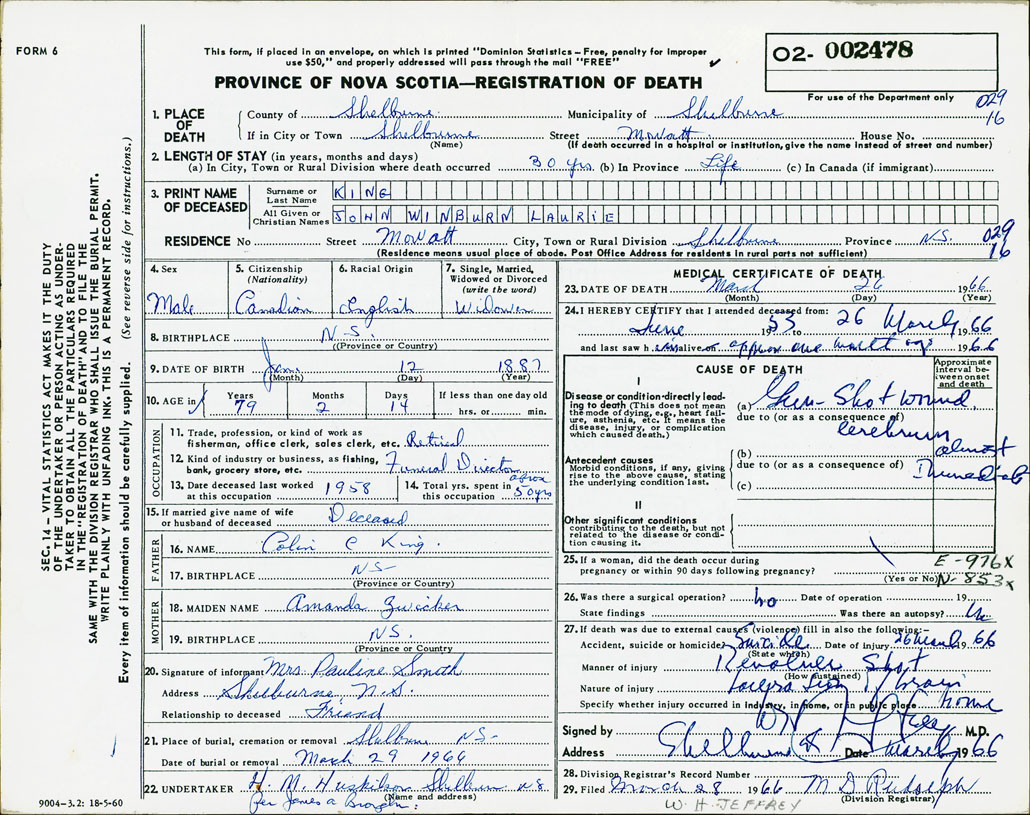 FORM 6
This form, if placed in an envelope, on which is printed "Dominion Statistics – Free, penalty for improper
use $50," and properly addressed will pass through the mail "FREE"
O2- 002478
For use of the Department only
PROVINCE OF NOVA SCOTIA—REGISTRATION OF DEATH
029
16
1. PLACE OF DEATH
County of Shelburne Municipality of Shelburne
If in City or Town Shelburne Street Mowatt House No.
(Name) (If death occurred in a hospital or institution, give the name instead of street and number)
2. LENGTH OF STAY (in years, months and days)
(a) In City, Town or Rural Division where death occurred 30 yrs. (b) In Province Life (c) In Canada (if immigrant)
3. PRINT NAME OF DECEASED
Surname or Last Name KING
All Given or Christian Names JOHN WINBURN LAURIE
RESIDENCE No Street Mowatt City, Town or Rural Division Shelburne Province N.S.
029
16
(Residence means usual place of abode. Post Office Address for residents in rural parts not sufficient)
SEC. 14 – VITAL STATISTICS ACT MAKES IT THE DUTY
OF THE UNDERTAKER OR PERSON ACTING AS UNDER-
TAKER TO OBTAIN ALL THE PARTICULARS REQUIRED
IN THE "REGISTRATION OF DEATH" AND TO FILE THE
SAME WITH THE DIVISION REGISTRAR WHO SHALL ISSUE THE BURIAL PERMIT.
WRITE PLAINLY WITH UNFADING INK. THIS IS A PERMANENT RECORD.
Every item of information should be carefully supplied. (See reverse side for instructions.)
4. Sex Male
5. Citizenship (Nationality) Canadian
6. Racial Origin English
7. Single, Married, Widowed or Divorced (write the word) Widower
8. BIRTHPLACE N-S-
(Province or Country)
9. DATE OF BIRTH Jan 12 1887
(Month) (Day) (Year)
10. AGE in Years 79 Months 2 Days 14 If less than one day old
hrs. or min.
OCCUPATION
11. Trade, profession, or kind of work as
fisherman, office clerk, sales clerk, etc. Retired
12. Kind of industry or business, as fishing,
bank, grocery store, etc. Funeral Director
13. Date deceased last worked
at this occupation 1958
14. Total yrs. spent in
this occupation approx 50 yrs
15. If married give name of wife
or husband of deceased Deceased
FATHER
16. NAME Colin C King.
17. BIRTHPLACE N-S-
(Province or Country)
MOTHER
18. MAIDEN NAME Amanda Zwicker
19. BIRTHPLACE N.S.
(Province or Country)
20. Signature of informant Mrs. Pauline Smith
Address Shelburne, N.S.
Relationship to deceased Friend
21. Place of burial, cremation or removal Shelburne N-S-
Date of burial or removal March 29 1966
22. UNDERTAKER H. M. Huskilson Shelburne N S
(Name and address)
per James A
9004–3.2: 18-5-60
MEDICAL CERTIFICATE OF DEATH
23. DATE OF DEATH March 26 1966
(Month) (Day) (Year)
24. I HEREBY CERTIFY that I attended deceased from:
June 1953 to 26 March, 1966
and last saw h im alive on approx one month ago 1966
CAUSE OF DEATH
Approximate interval between onset and death
I
Disease or condition-directly lead-
ing to death (This does not mean
the mode of dying, e.g., heart fail-
ure, asthenia, etc. It means the
disease, injury, or complication
which caused death.)
(a) Gun-Shot wound
due to (or as a consequence of)
cerebrum
almost
Immediate
Antecedent causes
Morbid conditions, if any, giving
rise to the above cause, stating
the underlying condition last.
(b)
due to (or as a consequence of)
(c)
II
Other significant conditions
contributing to the death, but not
related to the disease or condi-
tion causing it.
25. If a woman, did the death occur during
pregnancy or within 90 days following pregnancy?
(Yes or No)
E-976X
N-853X
26. Was there a surgical operation? no Date of operation 19
State findings Was there an autopsy?
27. If death was due to external causes (violence) fill in also the following:–
Accident, suicide or homicide Suicide Date of injury 26 March 1966
(State which)
Manner of injury Revolver Shot
(How sustained)
Nature of injury Laceration brain
Specify whether injury occurred in industry, in home, or in public place home
Signed by M.D.
Address Shelburne Date March 1966
28. Division Registrar's Record Number
29. Filed March 28 1966 M D Rudolph
(Division Registrar)
W. H. JEFFREY